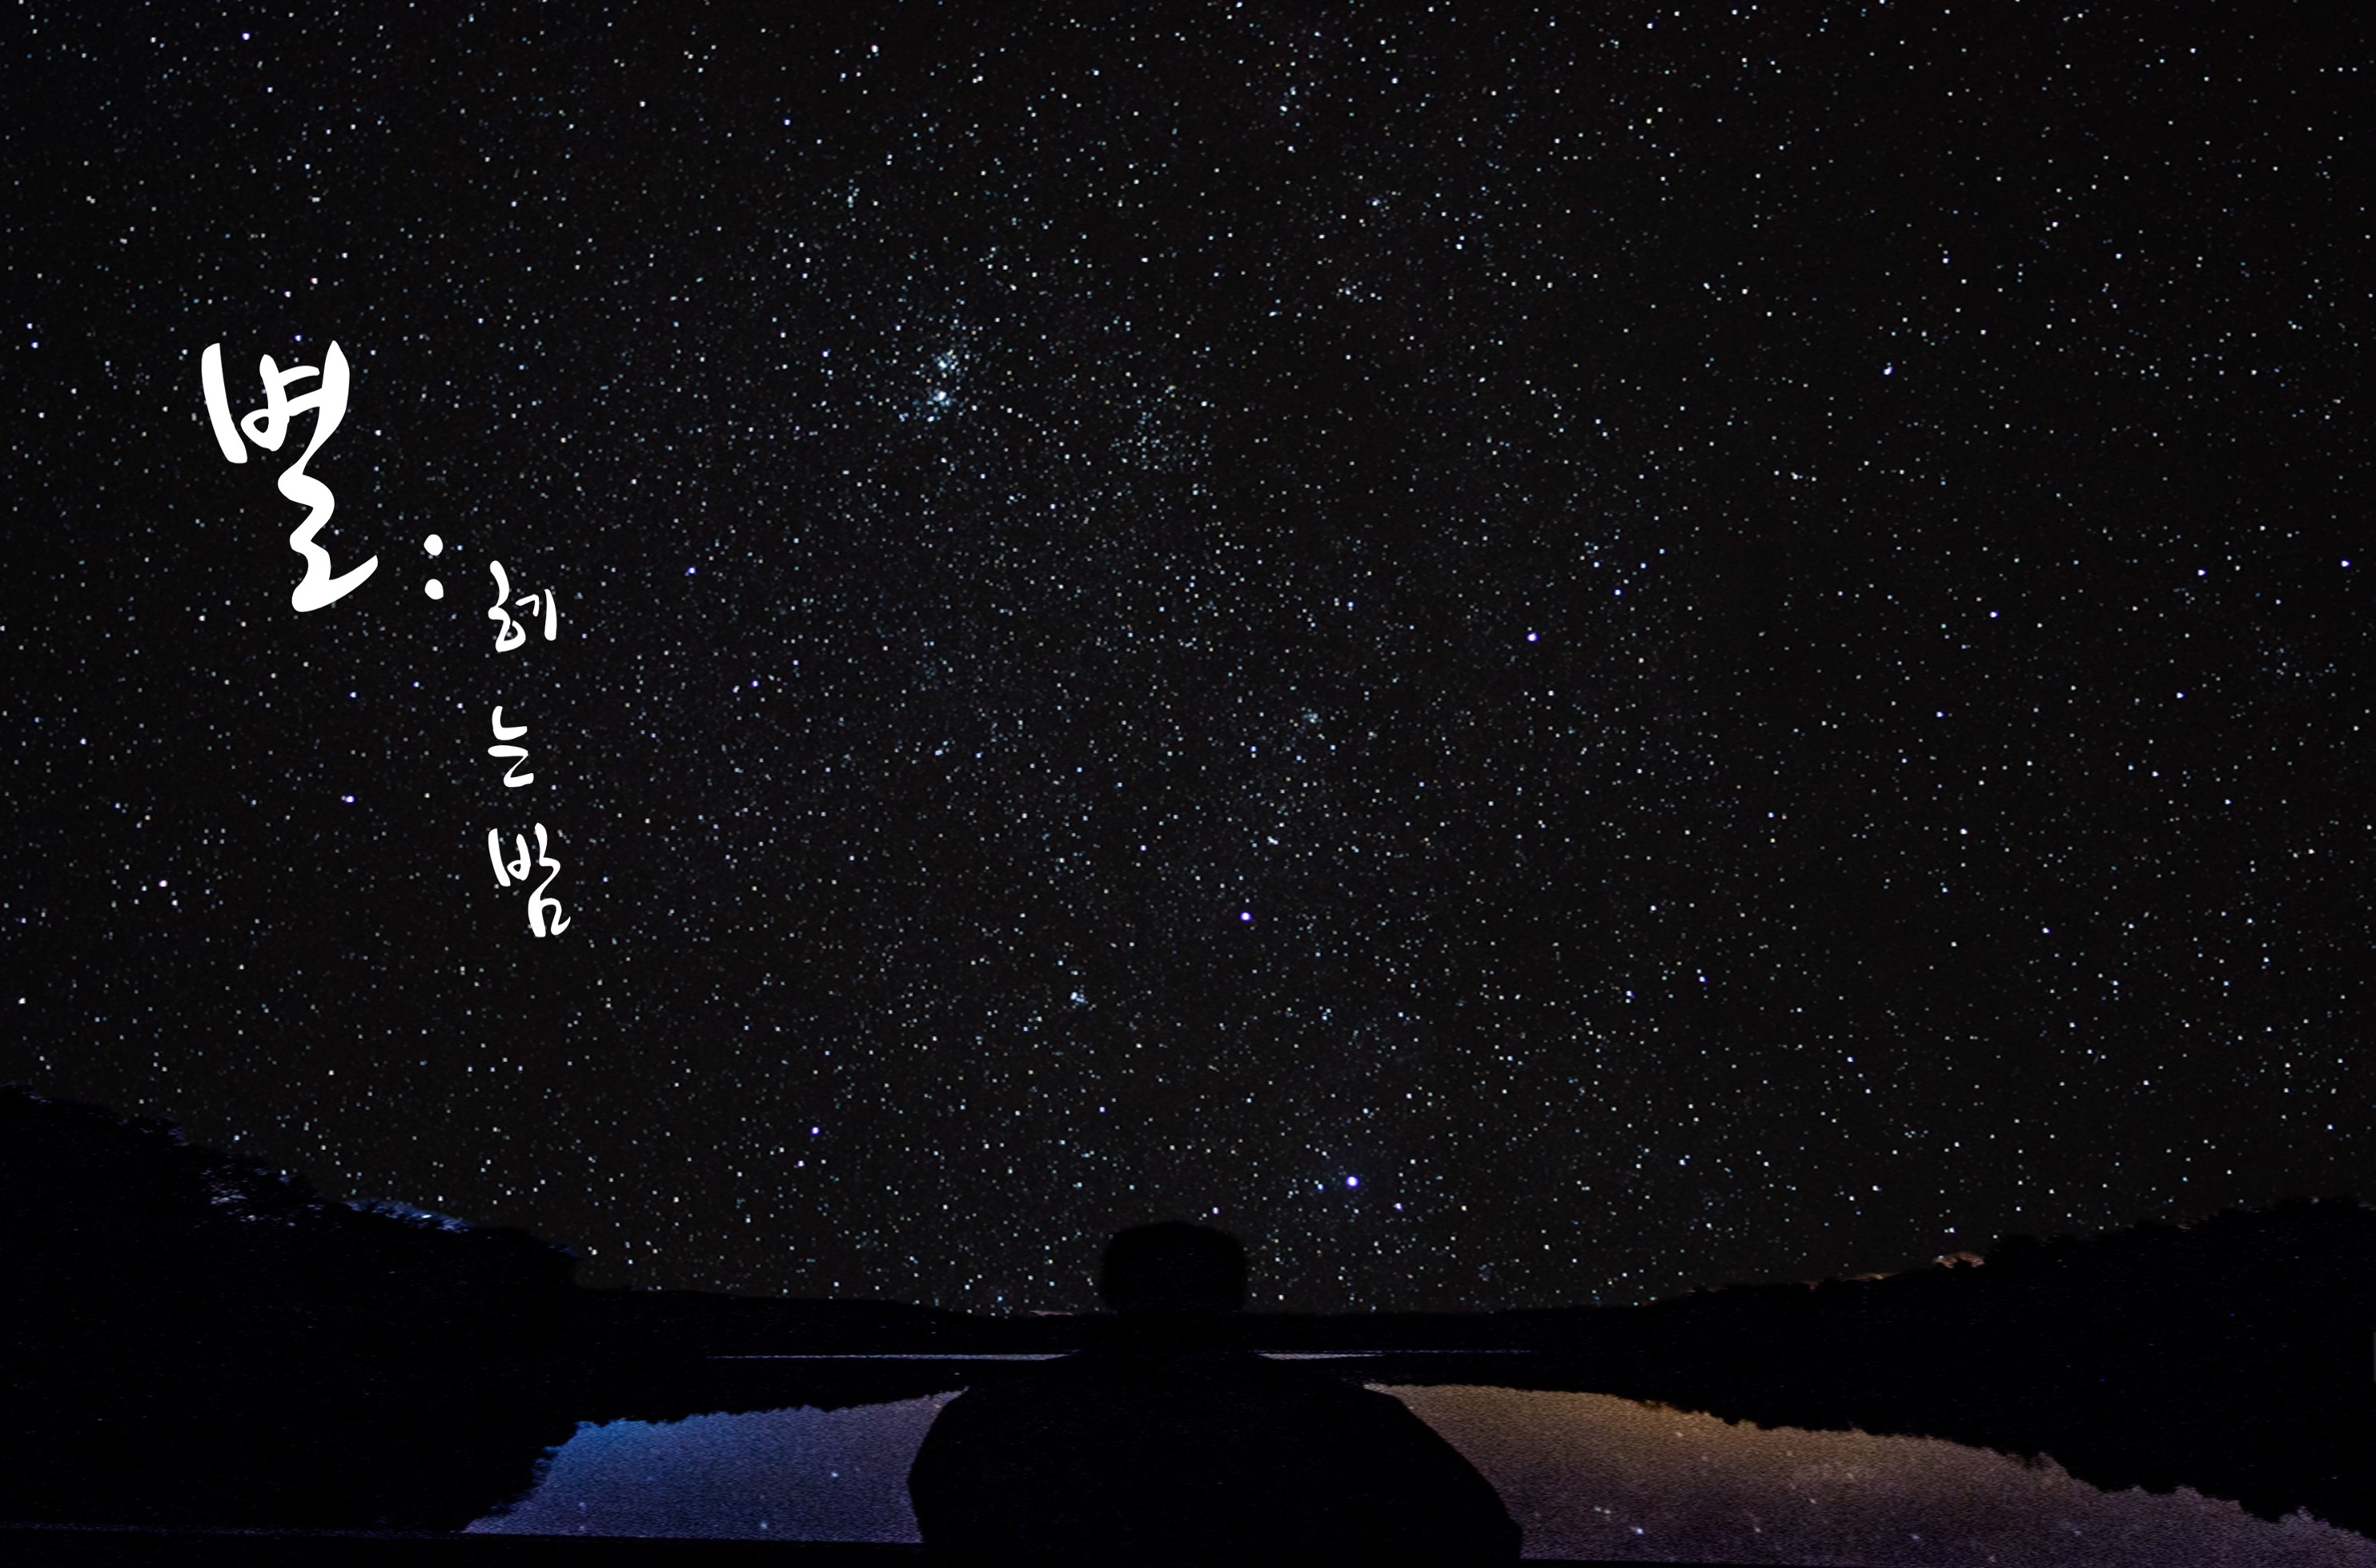 별:
헤
는
밤